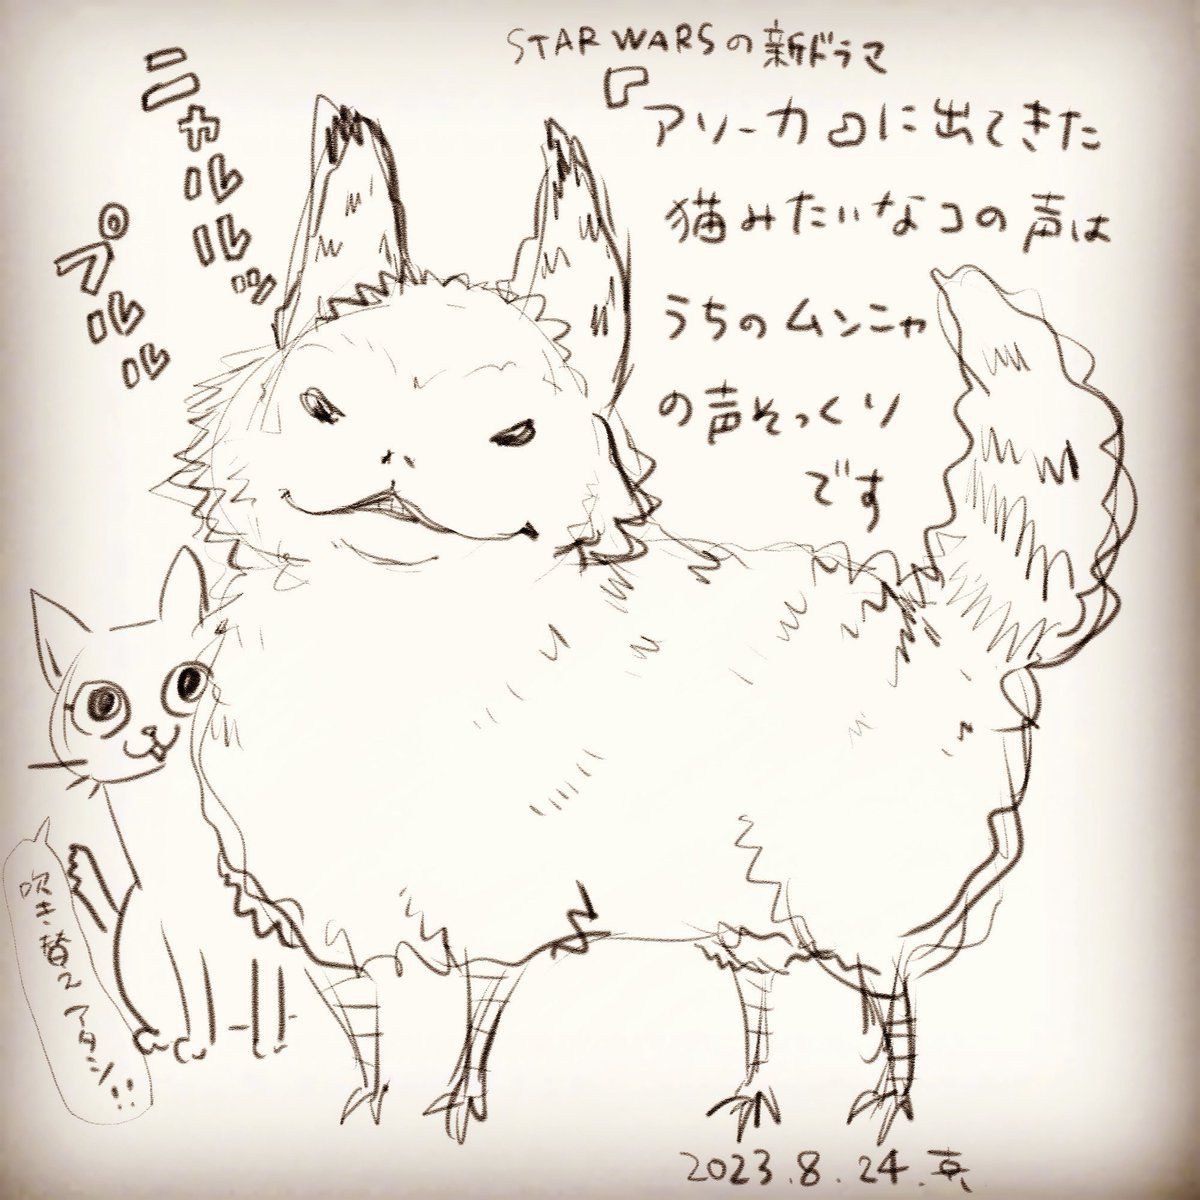 STAR WARSの新ドラマ
『アソーカ』に出てきた
猫みたいなコの声は
うちのムンニャ
の声そっくり
です
ニャルルッ
プルル
吹き替えアタシ!!
2023.8.24.京